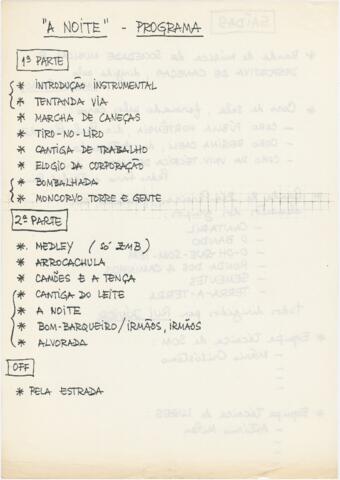 "A NOITE" - PROGRAMA
1ª PARTE
* INTRODUÇÃO INSTRUMENTAL
* TENTANDA VIA
* MARCHA DE CANEÇAS
* TIRO-NO-LIRO
* CANTIGA DE TRABALHO
* ELOGIO DA CORPORAÇÃO
* BOMBALHADA
* MONCORVO TORRE E GENTE
2ª PARTE
* MEDLEY (SÓ BMB)
* ARROCACHULA
* CAMÕES E A TENÇA
* CANTIGA DO LEITE
* A NOITE
* BOM-BARQUEIRO/IRMÃOS, IRMÃOS
* ALVORADA
OFF
* PELA ESTRADA